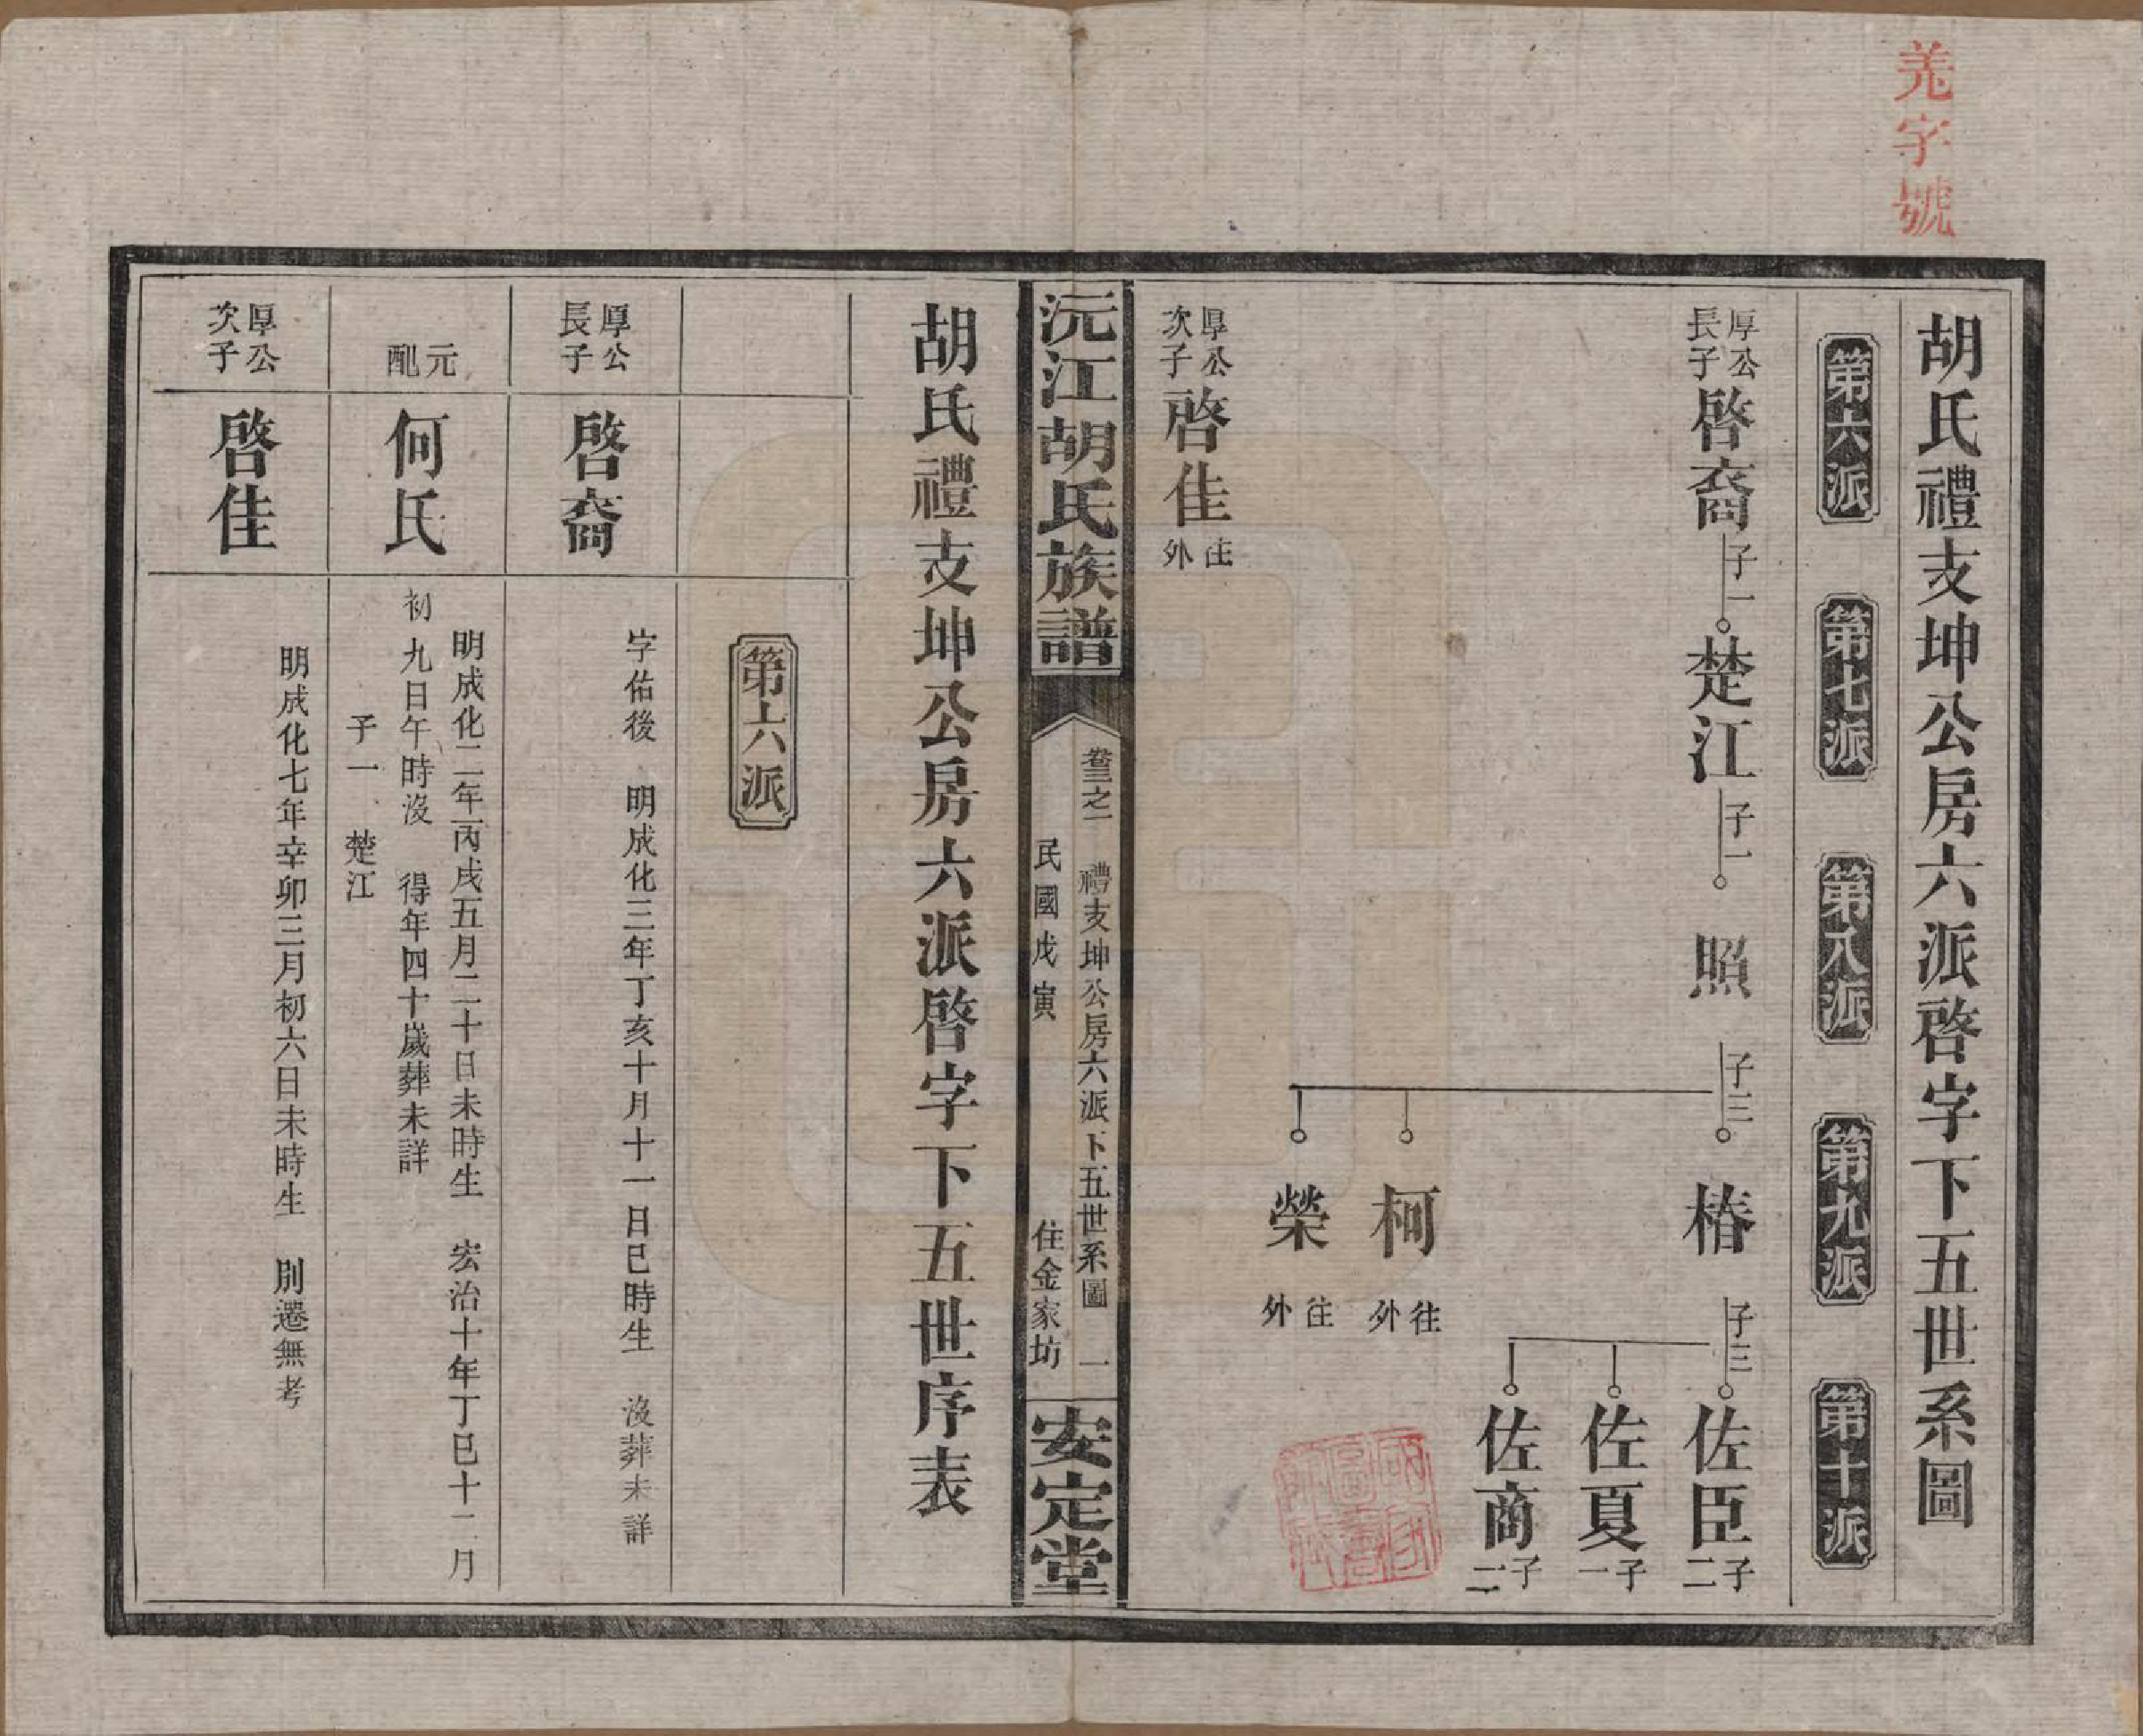 羌字號
胡氏禮支坤公房六派啓字下五世系圖
第六派
第七派
第八派
第九派
第十派
厚公長子
啓裔
子一
楚江
子一
照
子三
椿
子三
佐臣
子二
佐夏
子一
佐商
子二
柯
往外
榮
往外
厚公次子
啓佳
往外
沅江胡氏族譜
卷三之一
禮支坤公房六派下五世系圖
一
民國戊寅
住金家坊
安定堂
胡氏禮支坤公房六派啓字下五世序表
第六派
厚公長子
啓裔
字佑後 明成化三年丁亥十月十一日巳時生 沒葬未詳
元配
何氏
明成化二年丙戌五月二十日未時生 宏治十年丁巳十二月
初九日午時沒 得年四十歲葬未詳
子一 楚江
厚公次子
啓佳
明成化七年辛卯三月初六日未時生 別遷無考